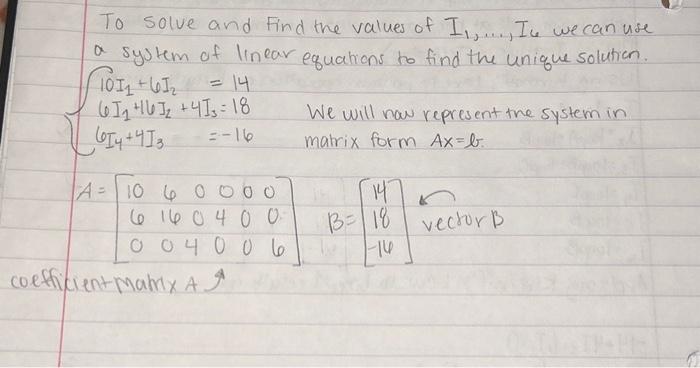 To solve and find the values of I₁,..., I₆ we can use
a system of linear equations to find the unique solution.
10I₁ + 6I₂ = 14
6I₁ + 16I₂ + 4I₃ = 18 We will now represent the system in
6I₄ + 4I₃ = -16 matrix form Ax = b.
A = [10 6 0 0 0 0] [14]
[6 16 0 4 0 0] B = [18] vector B
[0 0 4 0 0 6] [-16]
coefficient matrix A